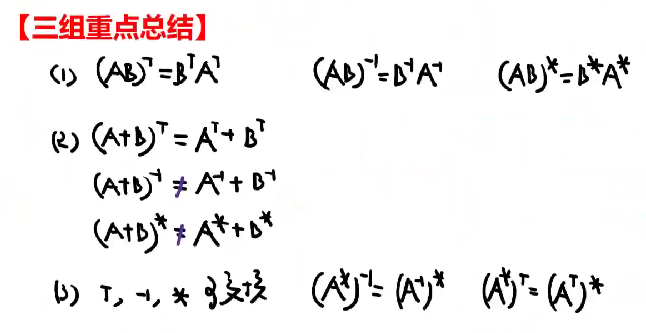 【三组重点总结】
(1) (AB)ᵀ=BᵀAᵀ (AB)⁻¹=B⁻¹A⁻¹ (AB)*=B*A*
(2) (A+B)ᵀ=Aᵀ+Bᵀ
(A+B)⁻¹≠A⁻¹+B⁻¹
(A+B)*≠A*+B*
(3) T, -1, * 可交换 (A*)⁻¹=(A⁻¹)* (A*)ᵀ=(Aᵀ)*